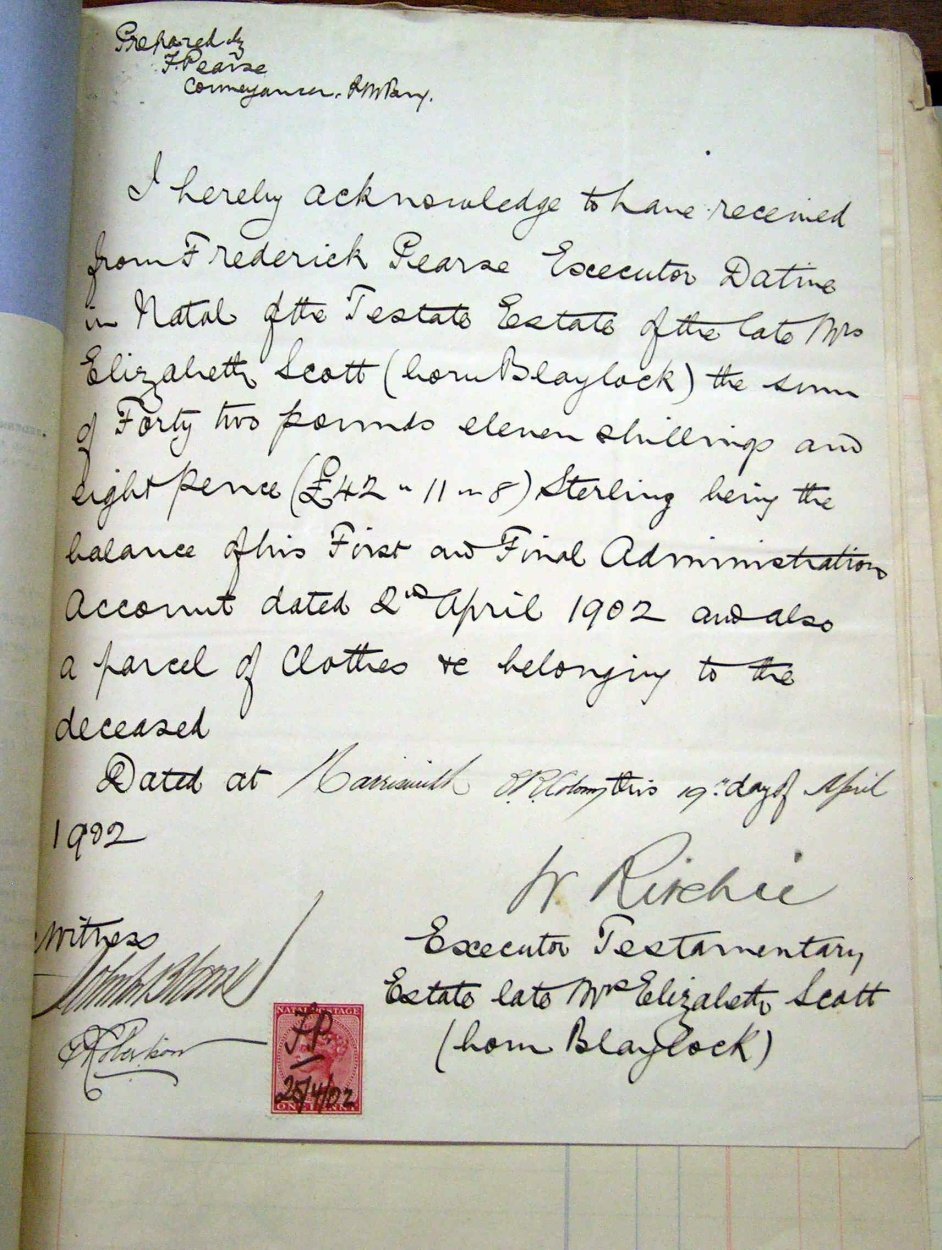 Prepared by
F. Pearse
Conveyancer. P.M.Burg.
I hereby acknowledge to have received
from Frederick Pearse Executor Dative
in Natal of the Testate Estate of the late Mrs
Elizabeth Scott (born Blaylock) the sum
of Forty two pounds eleven shillings and
eight pence (£42 " 11 " 8) Sterling being the
balance of his First and Final Administration
Account dated 2nd April 1902 and also
a parcel of Clothes &c belonging to the
deceased
Dated at Harrismith O.R. Colony this 19th day of April
1902
W. Ritchie
Witness
Executor Testamentary
Estate late Mrs Elizabeth Scott
(born Blaylock)
NATAL POSTAGE
F.P.
25/4/02
ONE PENNY